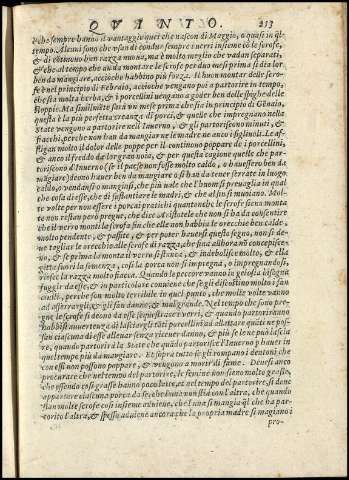 QVINTO. 213
che sempre hanno il vantaggio quei che nascon di Maggio, o quasi in ql
tempo. Alcuni sono che usan di condur sempre i verri insieme co le scrofe,
& di costoro ben razza muna, ma è molto meglio che vadan separati,
& che al tempo che an da montar le scrofe per duo mesi prima si dia lor
ben da mangiare, acciochè habbino più forza. Il buon montar delle scro-
fe è nel principio di Febraio, acciochè vengano poi a partorire in tempo,
che sia molta herba, & i porcellini vengano a goder ben delle spighe delle
stoppie. Ma similmente sarà un mese prima che sia in principio di Genaio,
questa è la più perfetta creanza di porci, & quelle che impregnano nella
State vengono a partorire nell'Inverno, & gli partoriscono minuti, &
fiacchi, perche non han da mangiar ne le madre ne anco i figlinoli. Le af-
fligan molto il dolor delle poppe per il continouo poppare de i porcellini,
& anco il freddo da lor gran noia, & per questa cagione quelle che par-
toriscono d'Inverno (se il paese non fosse molto caldo, o havessero ben da
mangiare) deono haver ben da mangiare o si han da tener serrate in luogo
caldo, o vendansi o manginsi, che più vale che l'huom si prevaglia in qual
che cosa di esse, che di assamare le madri, & che alsin si muoiano. Mol-
te volte per non essere i porcari pratichi quantunche le scrofe siena monta
te non restan però pregne, che dice Aristotele che non si ha da consentire
che il verro monti la scrofa fin che ella non habbia le orecchie ben calde,
molto pendente, & passite, & per poter haversi questo segno, non si de-
no tagliar le orecchie alle scrofe di razza, che fina allhora non concepisco-
no, & se prima la monta il verro si stracca, & indebolisce molto, & ella
gitte fuori la semenza, così la porca non si impregna, o impregnandosi,
riesce la razza molto fiacca. Quando le peccore vanno in gelosia bisogna
fuggir da esse, & in particolare conviene che se gli discostino molto i fan
ciulli, perche son molto terribile in quel punto, che molte volte vanno
ad assrontargli, & gli fan danno, & mal grande. Nel tempo che sono pre-
gne le scrofe si deono da esse sequestrare i verri, & quando partoriranno
habbisi auvertenza di lasciargli tati porcellini ad allattare quati ne pos-
san ciascuna di esse allevar senza ricever danno, & più se le ne può lascia
re, quando partorirà la State che quando partorisce l'Inverno p haver in
quel tempo più da mangiare. Et sopra tutto se gli rompano i dentoni, che
con essi non possono poppare, & vengono a morir di fame. Devesi anco
procurare che nel tempo del partorire, le femine non sieno molto grasse,
che essendo così grasse hanno poco latte, et nel tempo del partorire, si deno
appartare ciascuna porca da se, che l'una non stia con l'altra, che quando
stan molte scrofe così insieme aviene, che l'una si mangia ql che ha par-
torito l'altra, & spesso aviene ancora che la propria madre si mangia i
pro-